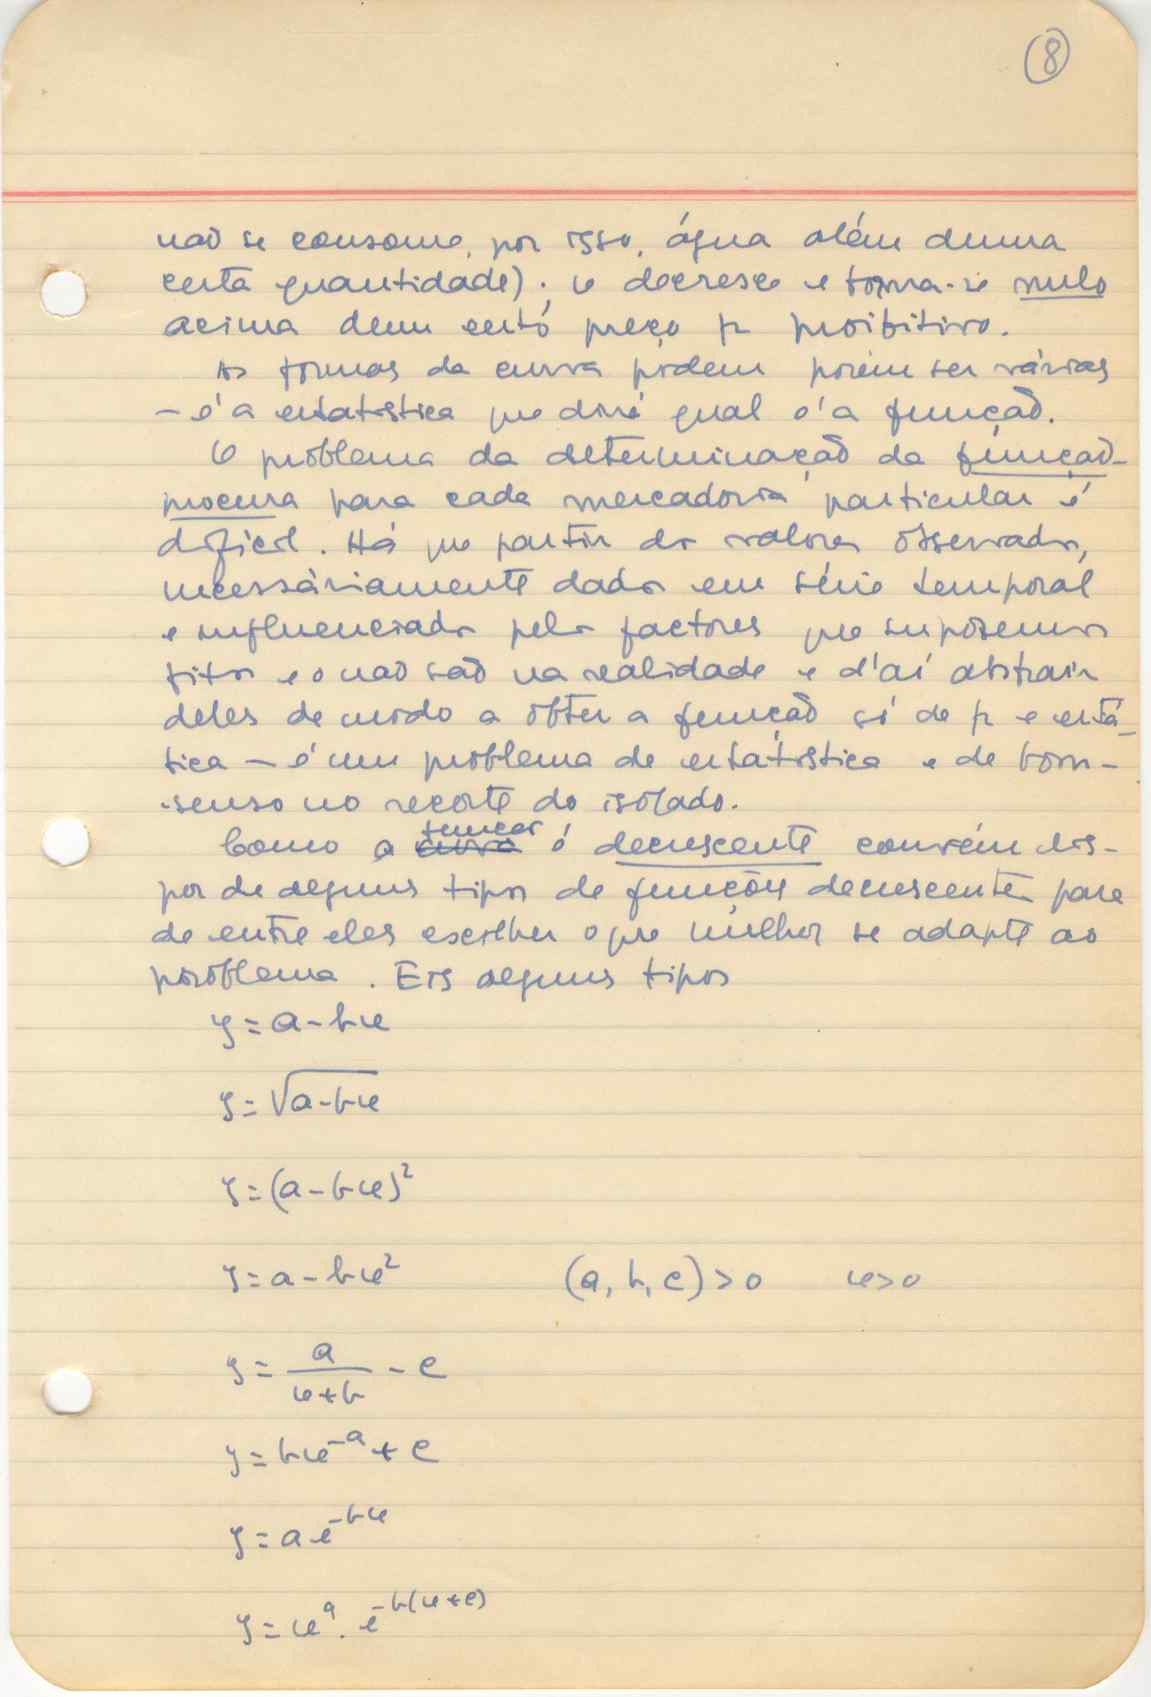 8
não se consome, por isso, água além duma
certa quantidade); x decresce e torna-se nulo
acima dum certo preço p proibitivo.
As formas da curva podem porém ser várias
– é a estatística que dirá qual é a função.
O problema da determinação da função-
procura para cada mercadoria particular é
difícil. Há que partir dos valores observados,
necessáriamente dados em série temporal
e influenciados pelos factores que supusemos
fixos e o não são na realidade e d'aí abstrair
deles de modo a obter a função só de p e está-
tica – é um problema de estatística e de bom-
-senso no recorte do isolado.
Como a curva função é decrescente convém dis-
por de alguns tipos de funções decrescentes para
de entre eles escolher o que melhor se adapte ao
problema. Eis alguns tipos
y = a - bx
y = √(a - bx)
y = (a - bx)²
y = a - bx² (a, b, c) > 0 x > 0
y = a/(x+b) - c
y = bx^{-a} + c
y = a e^{-bx}
y = x^a . e^{-b(x+c)}